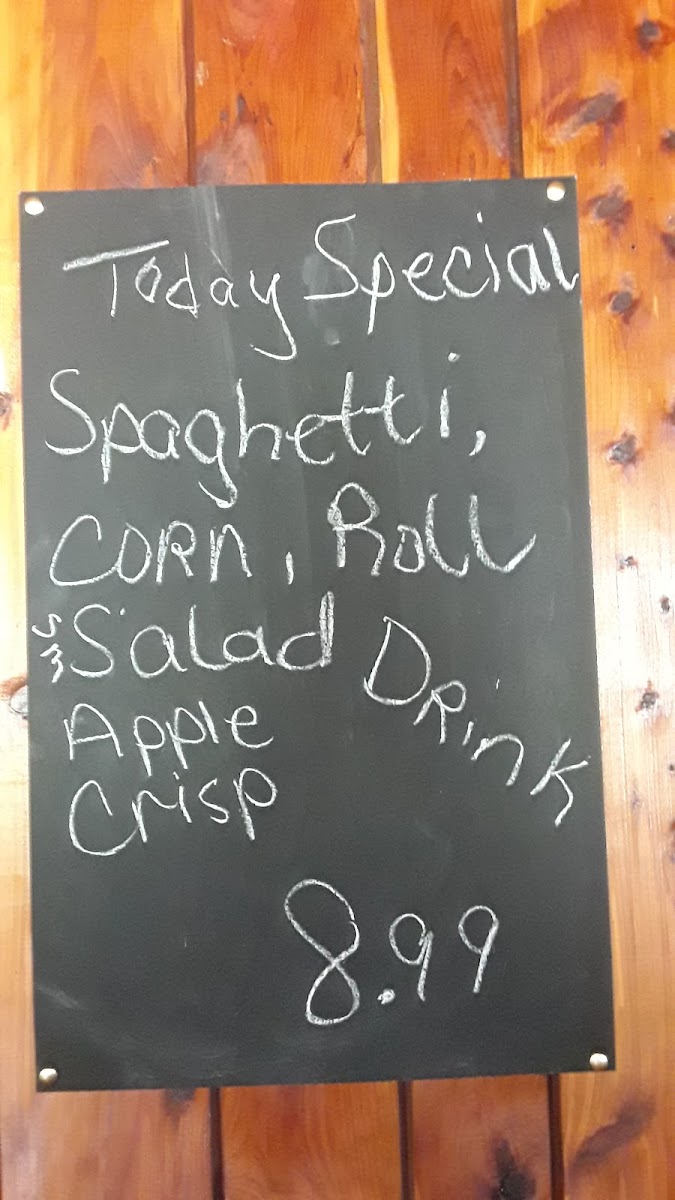 Today Special
Spaghetti,
CORN, Roll
Sm Salad DRink
Apple
Crisp
8.99